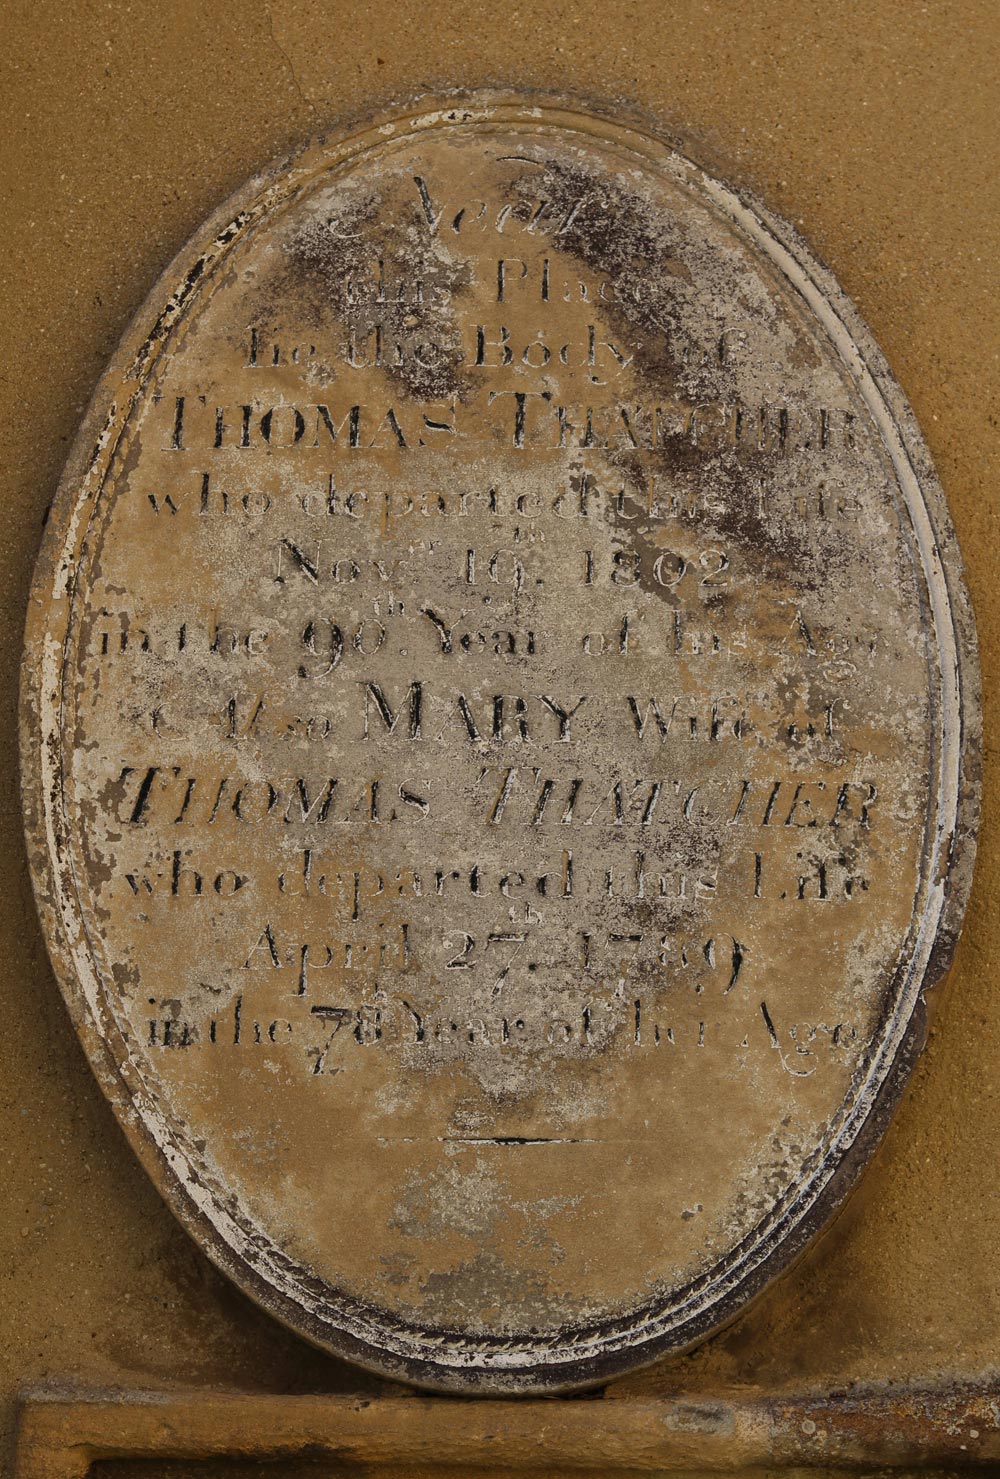 Near
this Place
lie the Body of
THOMAS THATCHER
who departed this Life
Novr. 19th. 1802
in the 90th. Year of his Age
Also MARY Wife of
THOMAS THATCHER
who departed this Life
April 27th. 1789
in the 78 Year of her Age